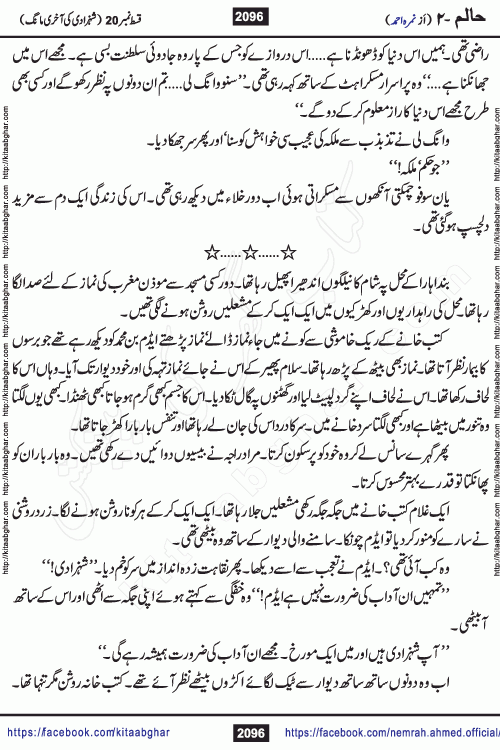 حالم -۲ (از نمرہ احمد) 2096 قسط نمبر 20 (شہزادی کی آخری مانگ)
راضی تھی۔ ہمیں اس دنیا کو ڈھونڈنا ہے.....اس دروازے کو جس کے پار وہ جادوئی سلطنت بسی ہے۔ مجھے اس میں
جھانکنا ہے....‘‘ وہ پراسرار مسکراہٹ کے ساتھ کہہ رہی تھی۔ ’’سنو وانگ لی.... تم ان دونوں پہ نظر رکھو گے اور کسی بھی
طرح مجھے اس دنیا کا راز معلوم کر کے دو گے۔‘‘
وانگ لی نے تذبذب سے ملکہ کی عجیب سی خواہش کو سنا‘ اور پھر سر جھکا دیا۔
’’جو حکم‘ ملکہ!‘‘
یان سوفو چمکتی آنکھوں سے مسکراتی ہوئی اب دور خلاء میں دیکھ رہی تھی۔ اس کی زندگی ایک دم سے مزید
دلچسپ ہو گئی تھی۔
☆......☆......☆
بنداہارا کے محل پہ شام کا نیلگوں اندھیرا پھیل رہا تھا۔ دور کسی مسجد سے موذن مغرب کی نماز کے لئے صدا لگا
رہا تھا۔ محل کی راہداریوں اور کھڑکیوں میں ایک ایک کر کے مشعلیں روشن ہونے لگی تھیں۔
کتب خانے کے ریک خاموشی سے کونے میں جاء نماز ڈالے‘ نماز پڑھتے ایڈم بن محمد کو دیکھ رہے تھے جو برسوں
کا بیمار نظر آتا تھا۔ نماز بھی بیٹھ کے پڑھ رہا تھا۔ سلام پھیر کے اس نے جائے نماز تہہ کی اور خود دیوار تک آیا۔ وہاں اس کا
لحاف رکھا تھا۔ اس نے لحاف اپنے گرد لپیٹ لیا اور گھٹنوں پہ گال ٹکا دیا۔ اس کا جسم کبھی گرم ہو جاتا کبھی ٹھنڈا۔ کبھی یوں لگتا
وہ تنور میں بیٹھا ہے اور کبھی لگتا سرد خانے میں۔ سر کا درد اس کی جان لے رہا تھا اور تنفس بار بار اکھڑ جاتا تھا۔
پھر گہرے سانس لے کر وہ خود کو پرسکون کرتا۔ مراد راجہ نے بیسیوں دوائیں دے رکھی تھیں۔ وہ بار بار ان کو
پھانکتا تو قدرے بہتر محسوس کرتا۔
ایک غلام کتب خانے میں جگہ جگہ رکھی مشعلیں جلا رہا تھا۔ ایک ایک کر کے ہر کونا روشن ہونے لگا۔ زرد روشنی
نے سارے کو منور کر دیا تو ایڈم چونکا۔ سامنے والی دیوار کے ساتھ وہ بیٹھی تھی۔
وہ کب آئی تھی؟۔ ایڈم نے تعجب سے اسے دیکھا۔ پھر نقاہت زدہ انداز میں سر کو خم دیا۔ ’’شہزادی!‘‘
’’تمہیں ان آداب کی ضرورت نہیں ہے ایڈم!‘‘ وہ خفگی سے کہتے ہوئے اپنی جگہ سے اٹھی اور اس کے ساتھ
آ بیٹھی۔
’’آپ شہزادی ہیں اور میں ایک مورخ۔ مجھے ان آداب کی ضرورت ہمیشہ رہے گی۔‘‘
اب وہ دونوں ساتھ ساتھ دیوار سے ٹیک لگائے اکڑوں بیٹھے نظر آئے تھے۔ کتب خانہ روشن مگر تنہا تھا۔
https://facebook.com/kitaabghar 2096 https://facebook.com/nemrah.ahmed.official/
http://kitaabghar.com